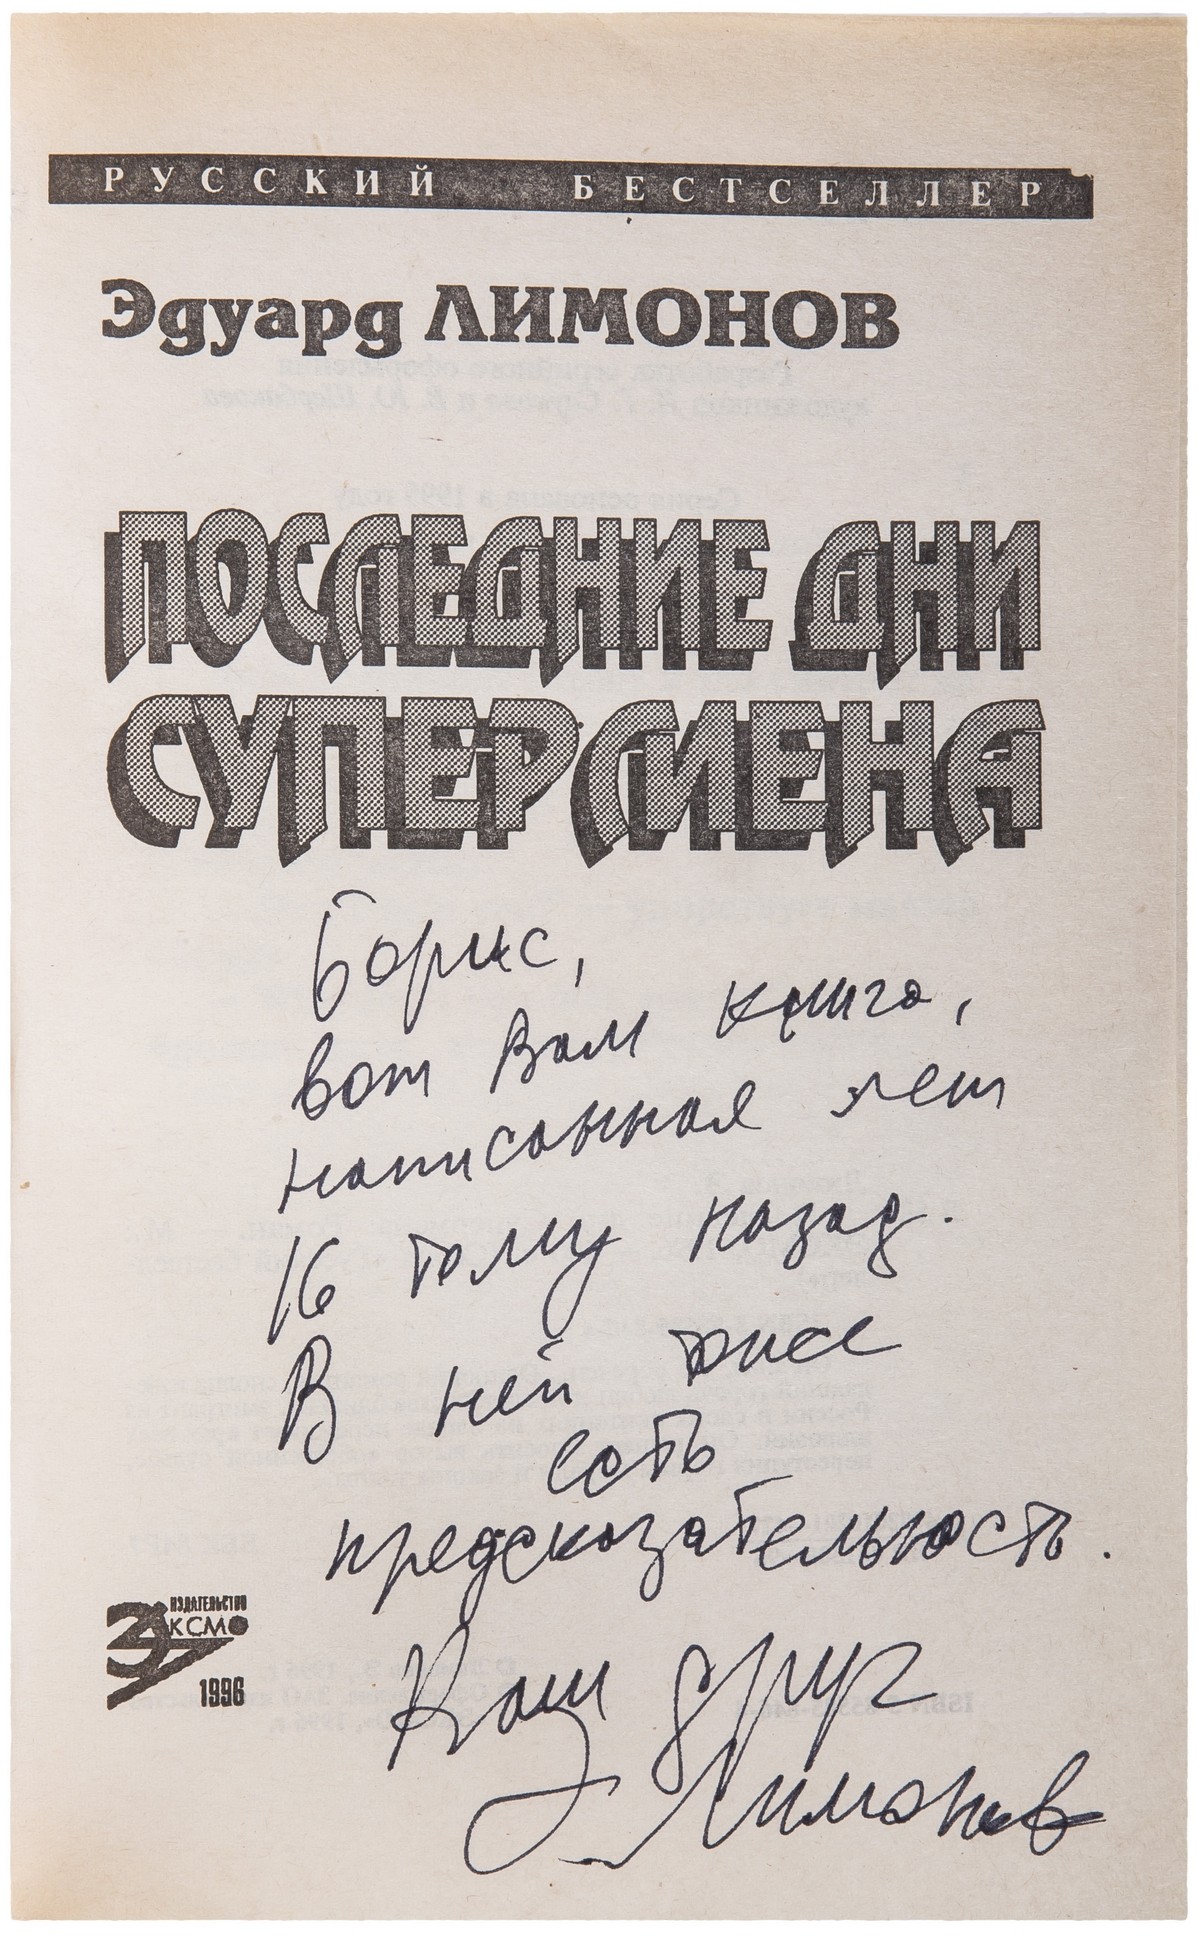 РУССКИЙ БЕСТСЕЛЛЕР
Эдуард ЛИМОНОВ
ПОСЛЕДНИЕ ДНИ
СУПЕРМЕНА
Борис,
вот Вам книга,
написанная лет
16 тому назад.
В ней тоже
есть
предсказательность.
Ваш друг
Э. Лимонов
ИЗДАТЕЛЬСТВО
ЭКСМО
1996